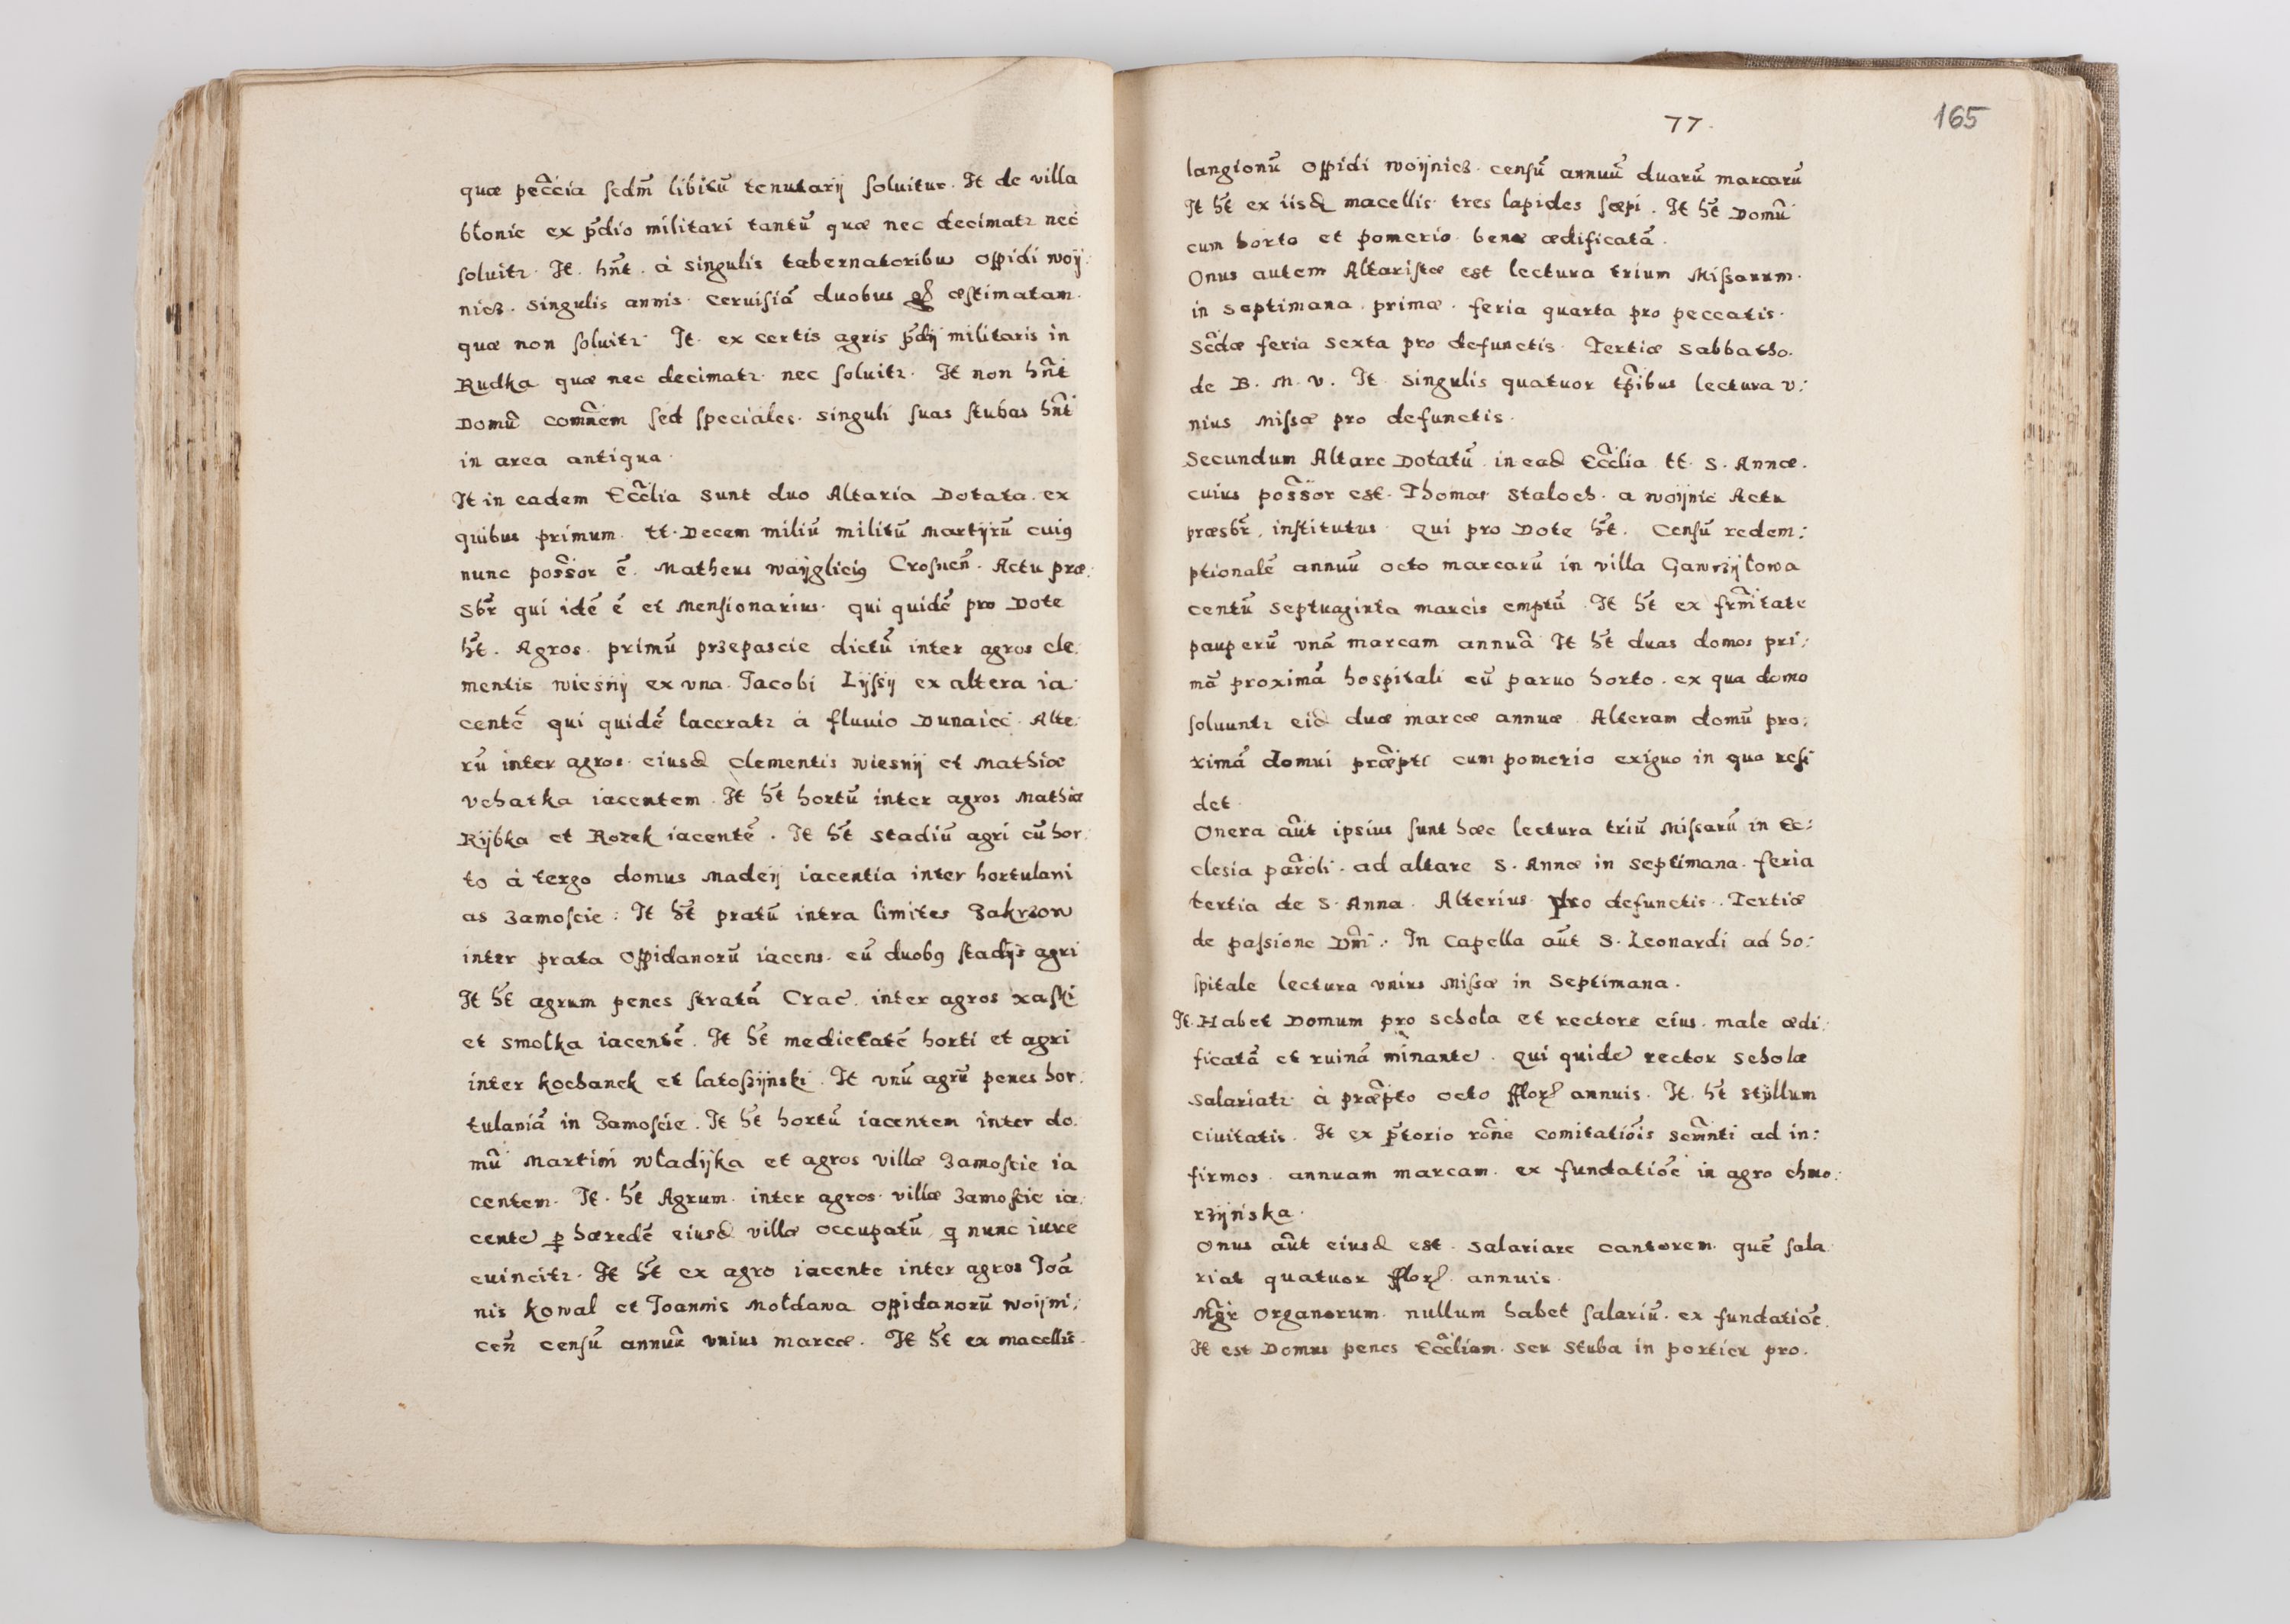 quæ peccia secdm̃ libitũ tenutarij soluitur. It de villa
błonie ex p̃dio militari tantũ quæ nec decimatr nec
soluitr. It. hñt. à singulis tabernatoribus oppidi woij:
nicz. singulis annis. ceruisiã duobus æstimatam.
quæ non soluitr. It. ex certis agris p̃dij militaris in
Rudka quæ nec decimatr. nec soluitr. It non hñt
Domũ comñem sed speciales. singuli suas stubas hñt
in area antiqua.
It in eadem Eccl̃ia sunt duo Altaria Dotata. ex
quibus primum. tt. Decem miliũ militũ Martijrũ cuiꝯ
nunc poss̃or ẽ. Matheus waijgliciꝯ Crosneñ. Actu præ:
sbr̃ qui idẽ ẽ et Mensionarius. qui quidẽ pro Dote
h̃t. Agros. primũ przepascie dictũ inter agros cle:
mentis wiesnij ex vna. Jacobi Lijsij ex altera ia:
centẽ qui quidẽ laceratr à fluuio Dunaiec. Alte:
rũ inter agros. eiusd clementis wiesnij et Mathiæ
vchatka iacentem. It h̃t hortũ inter agros Mathiæ
Rijbka et Rozek iacentẽ. It h̃t stadiũ agri cũ hor:
to à tergo domus Madeij iacentia inter hortulani
as Zamoscie: It h̃t pratũ intra limites Zakrzow
inter prata oppidanorũ iacens. cũ duobꝯ stadijs agri
It h̃t agrum penes stratã Crac̃. inter agros xaski
et smołka iacentẽ. It h̃t medietatẽ horti et agri
inter kochanek et latoszijnski. It vnũ agrũ penes hor:
tulaniã in Zamoscie. It h̃t hortũ iacentem inter do:
mũ Martini władijka et agros villæ Zamoscie ia
centem. It. h̃t Agrum. inter agros. villæ Zamoscie ia:
cente ꝑ hæredẽ eiusd villæ occupatũ, q nunc iure
euincitr. It h̃t ex agro iacente inter agros Joã
nis kowal et Joannis Mołdawa oppidanorũ woijni:
ceñ censũ annuũ vnius marcæ. It h̃t ex macellis.
77.
165
langionũ oppidi woijnicz. censũ annuũ duarũ marcarũ
It h̃t ex iisd macellis tres lapides sæpi. It h̃t Domũ
cum horto et pomerio benæ ædificatã.
Onus autem Altaristæ est lectura trium Missarum.
in septimana. primæ. feria quarta pro peccatis.
Sc̃dæ feria sexta pro defunctis. Tertiæ sabbatho.
de B. M. v. It. singulis quatuor tp̃ibus lectura v:
nius Missæ pro defunctis.
Secundum Altare Dotatũ. in ead Eccl̃ia tt. S. Annæ.
cuius poss̃or est. Thomas staloch. a woijnic Actu
præsbr̃. institutus. Qui pro Dote h̃t. Censũ redem:
ptionalẽ annuũ octo marcarũ in villa Gawrzijłowa
centũ septuaginta marcis emptũ. It h̃t ex frm̃itate
pauperũ vnã marcam annuã It h̃t duas domos pri:
mã proximã hospitali cũ paruo horto. ex qua domo
soluuntr eid duæ marcæ annuæ. Alteram domũ pro:
ximã domui præp̃ti cum pomerio exiguo in qua resi
det.
Onera aũt ipsius sunt hæc lectura triũ Missarũ in Ec:
clesia paroli. ad altare S. Annæ in septimana. feria
tertia de S. Anna. Alterius pro defunctis. Tertiæ
de passione Dñi. In Capella aũt S. Leonardi ad ho:
spitale lectura vnius Missæ in septimana.
It. Habet Domum pro schola et rectore eius. male ædi:
ficatã et ruinã minante. Qui quide rector scholæ
salariatr. à præp̃to octo fflor annuis. It. h̃t stijllum
ciuitatis. It ex p̃torio rõne comitatiõis sacm̃nti ad in:
firmos. annuam marcam. ex fundatiõe in agro chmo:
rzijnska.
Onus aũt eiusd est. salariare cantorem. quẽ sala
riat quatuor fflor. annuis.
Mgr̃ Organorum. nullum habet salariũ. ex fundatiõe.
It est Domus penes Eccl̃iam. seu stuba in porticu pro.